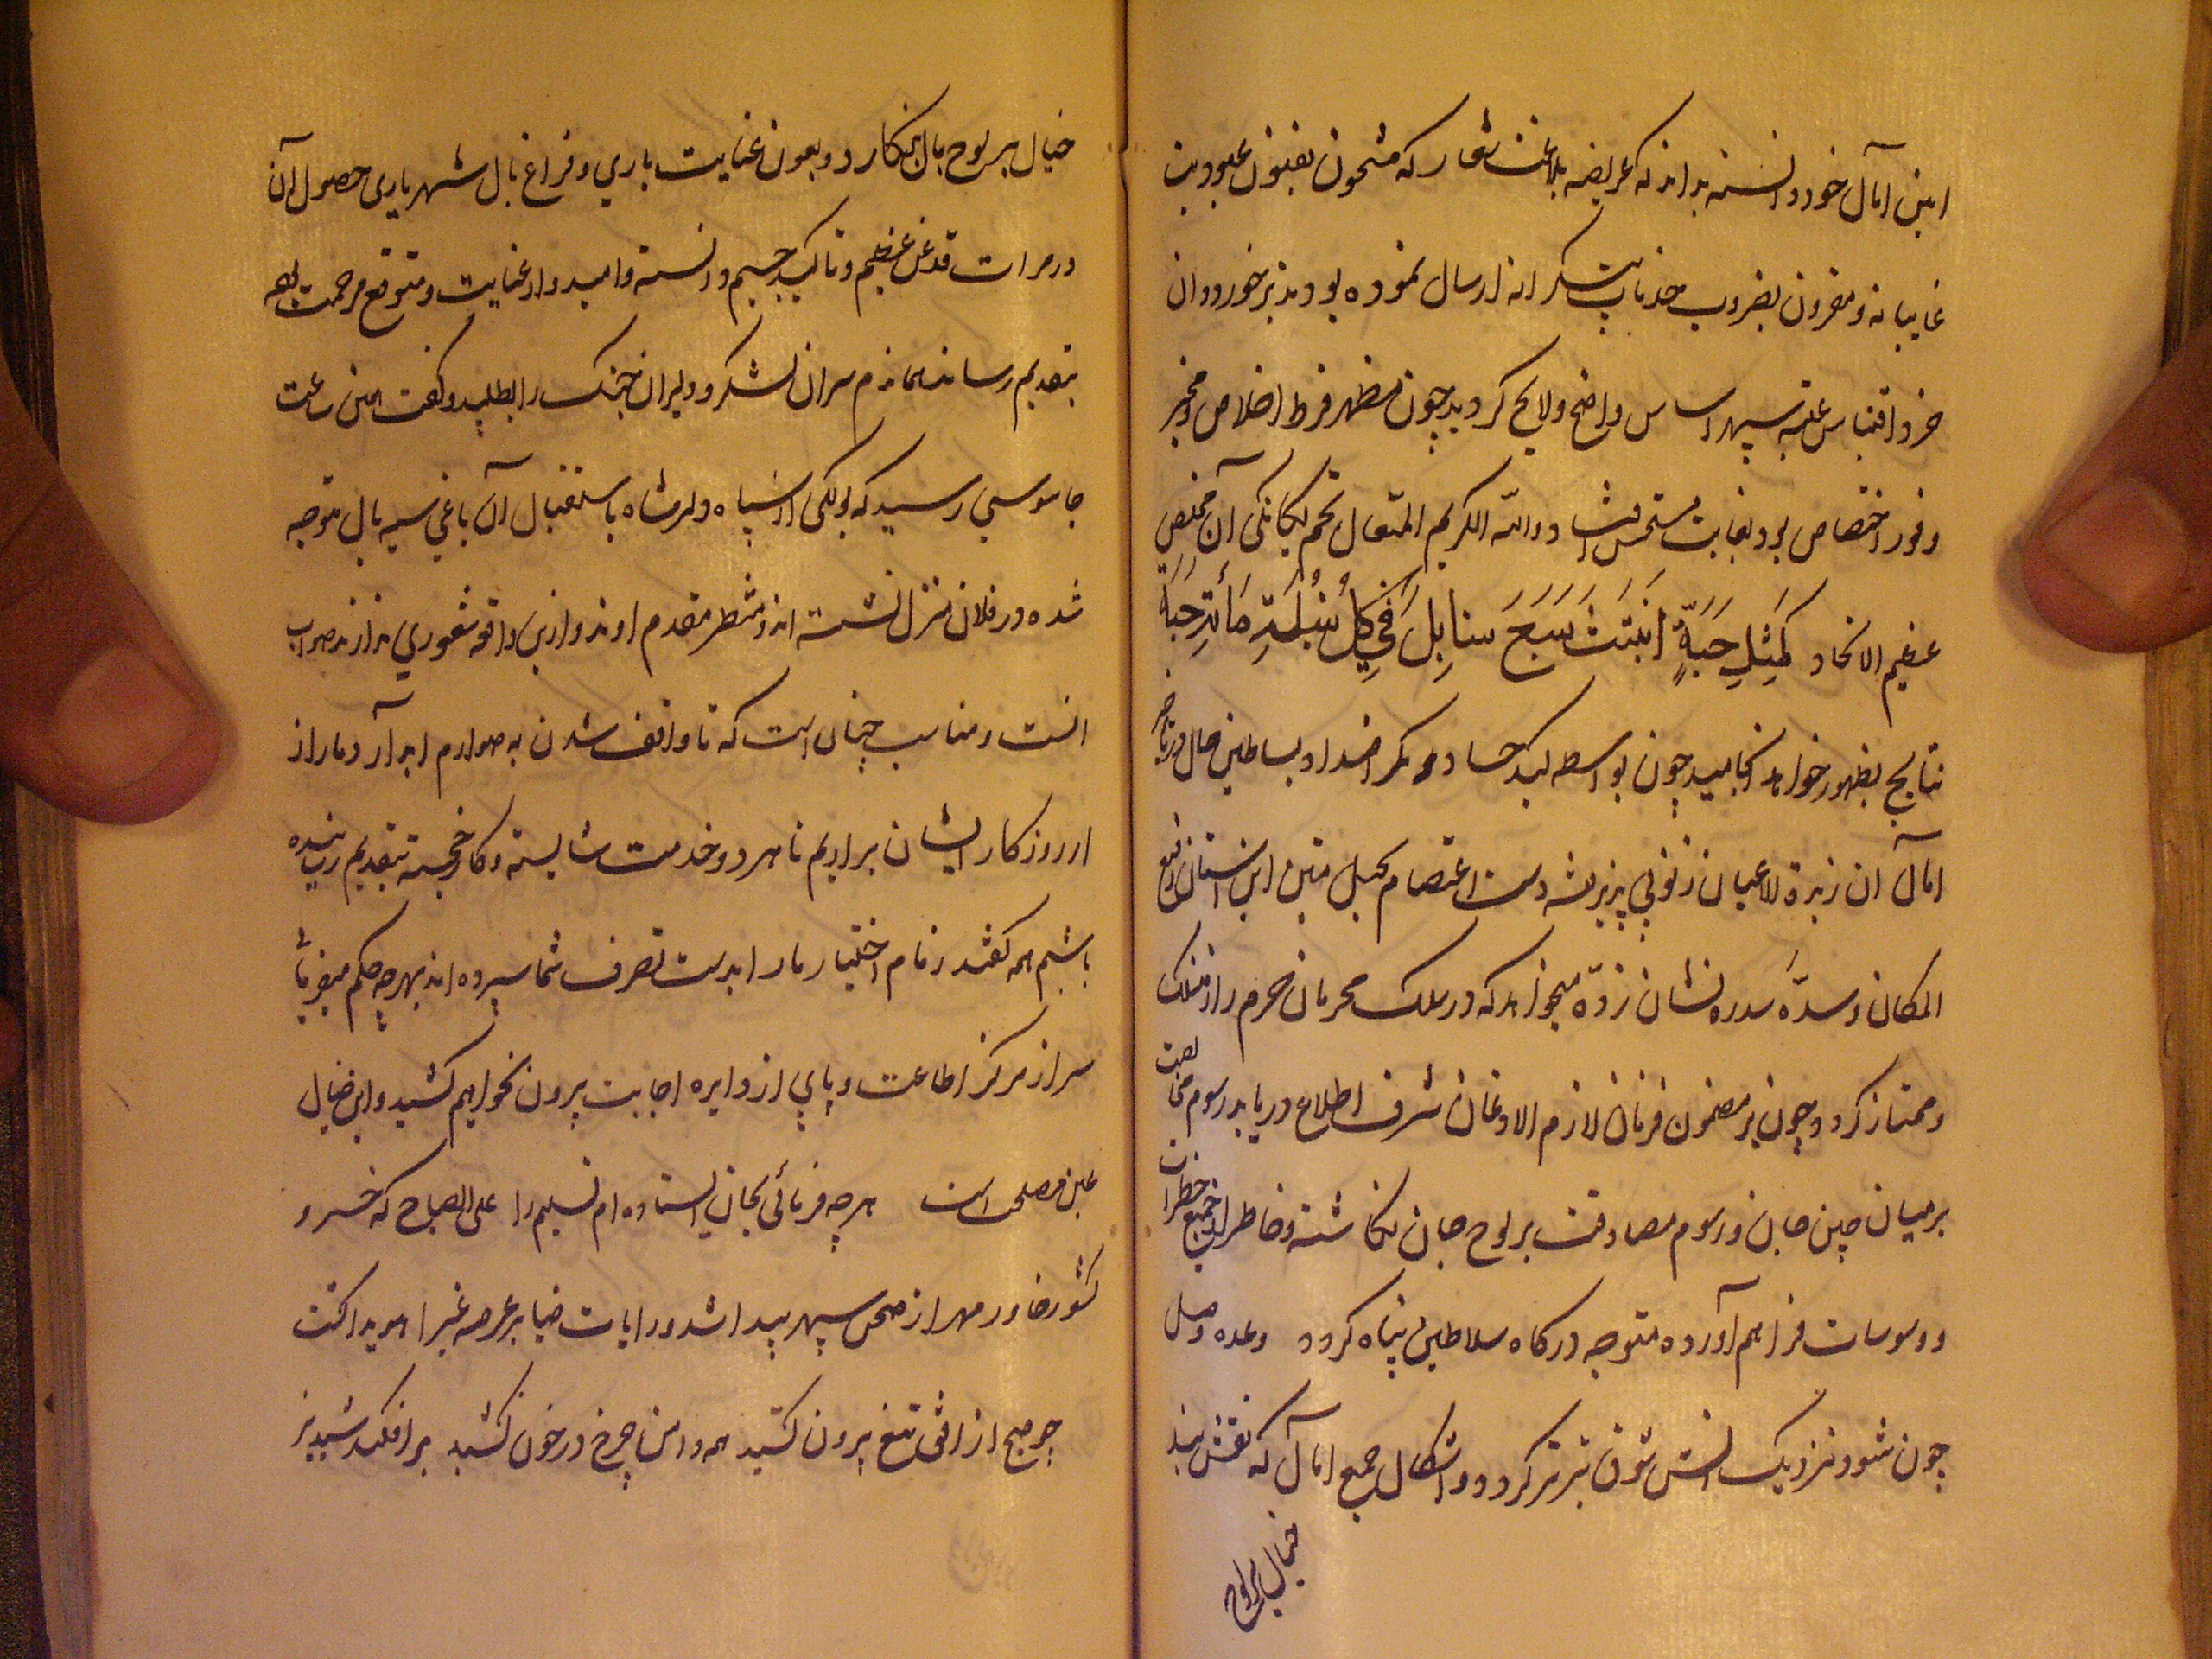 این آمال خود دانسته بداند که عریضه بلاغت شعار که مشحون بفنون عبودیت
غایبانه و مقرون بضروب خدمات شکرانه ارسال نموده بودند بر خورده دان
خرد اقتباس عتبه سپهر اساس واضح و لایح کردید چون مظهر فرط اخلاص و مخبر
وفور اختصاص بود بغایت مستحسن افتاد والله الکریم المتعال تخم یکانکی آن مخلص
عظیم الاتحاد کَمَثَلِ حَبَّةٍ اَنبَتَت سَبعَ سَنابِلَ فی کُلِّ سُنبُلَةٍ مِأَئةُ حَبَّة
نتایج بظهور خواهد انجامید چون بواسطه کید حساد و مکر اضداد بساطین حال و ریاض
امال آن زبدة الاعیان زبونی پذیرفته دست اعتصام بحبل متین این استان رفیع
المکان و سدّه سدره نشان زده میخواهد که در سلک محرمان حرم راز منسلک
و ممتاز کردد چون بر مضمون فرمان لازم الاذعان شرف اطلاع دریابد رسوم مخالصت
بر میان جان و رسوم مصادقت بر لوح جان نکاشته و خاطر از جمیع خطرات
و وسوسات فراهم آورده متوجه درکاه سلاطین پناه کردد وعده وصل
چون شود نزدیک آتش شوق تیزتر کردد و اشکال جمیع امال که نقش بند
خیال بر لوح
خیال بر لوح بال نکارد بعون عنایت باری و فراغ بال شهریاری حصول آن
در مرات قدغن عظیم و تاکید جسیم دانسته و امیدوار عنایت و متوقع مرحمت
بتقدیم رساند بهرام سران لشکر و دلیران جنک را بطلبید و کفت همین ساعت
جاسوسی رسید که بولکی از سپاه دلرمشاه باستقبال آن یاغی سیه بال متوجه
شده در فلان منزل نشسته اند و منتظر مقدم اوند و ازین واقعه شعوری ندارند صواب
انست و مناسب چنان است که تا واقف شدن به صوارم ابدار دمار از
از روزکار ایشان براریم تا هر دو خدمت شایسته و کار خجسته بتقدیم رسانیده
باشیم همه کفتند زمام اختیار مارا بدست تصرف شما سپرده اند بهر چه حکم میفرمایند
سر از مرکز اطاعت و پای از دایره اجابت بیرون نخواهیم کشید و این خیال
عین مصلحت است هر چه فرمائی بجان ایستاده ام تسلیم را علی الصباح که خسرو
کشور خاور مهر از صحن سپهر پیدا شد و رایات ضیا بر عرصه غبرا هویدا کشت
چو صبح از افق تیغ بیرون کشید همه دامن چرخ در خون کشید برافکند شبدیز